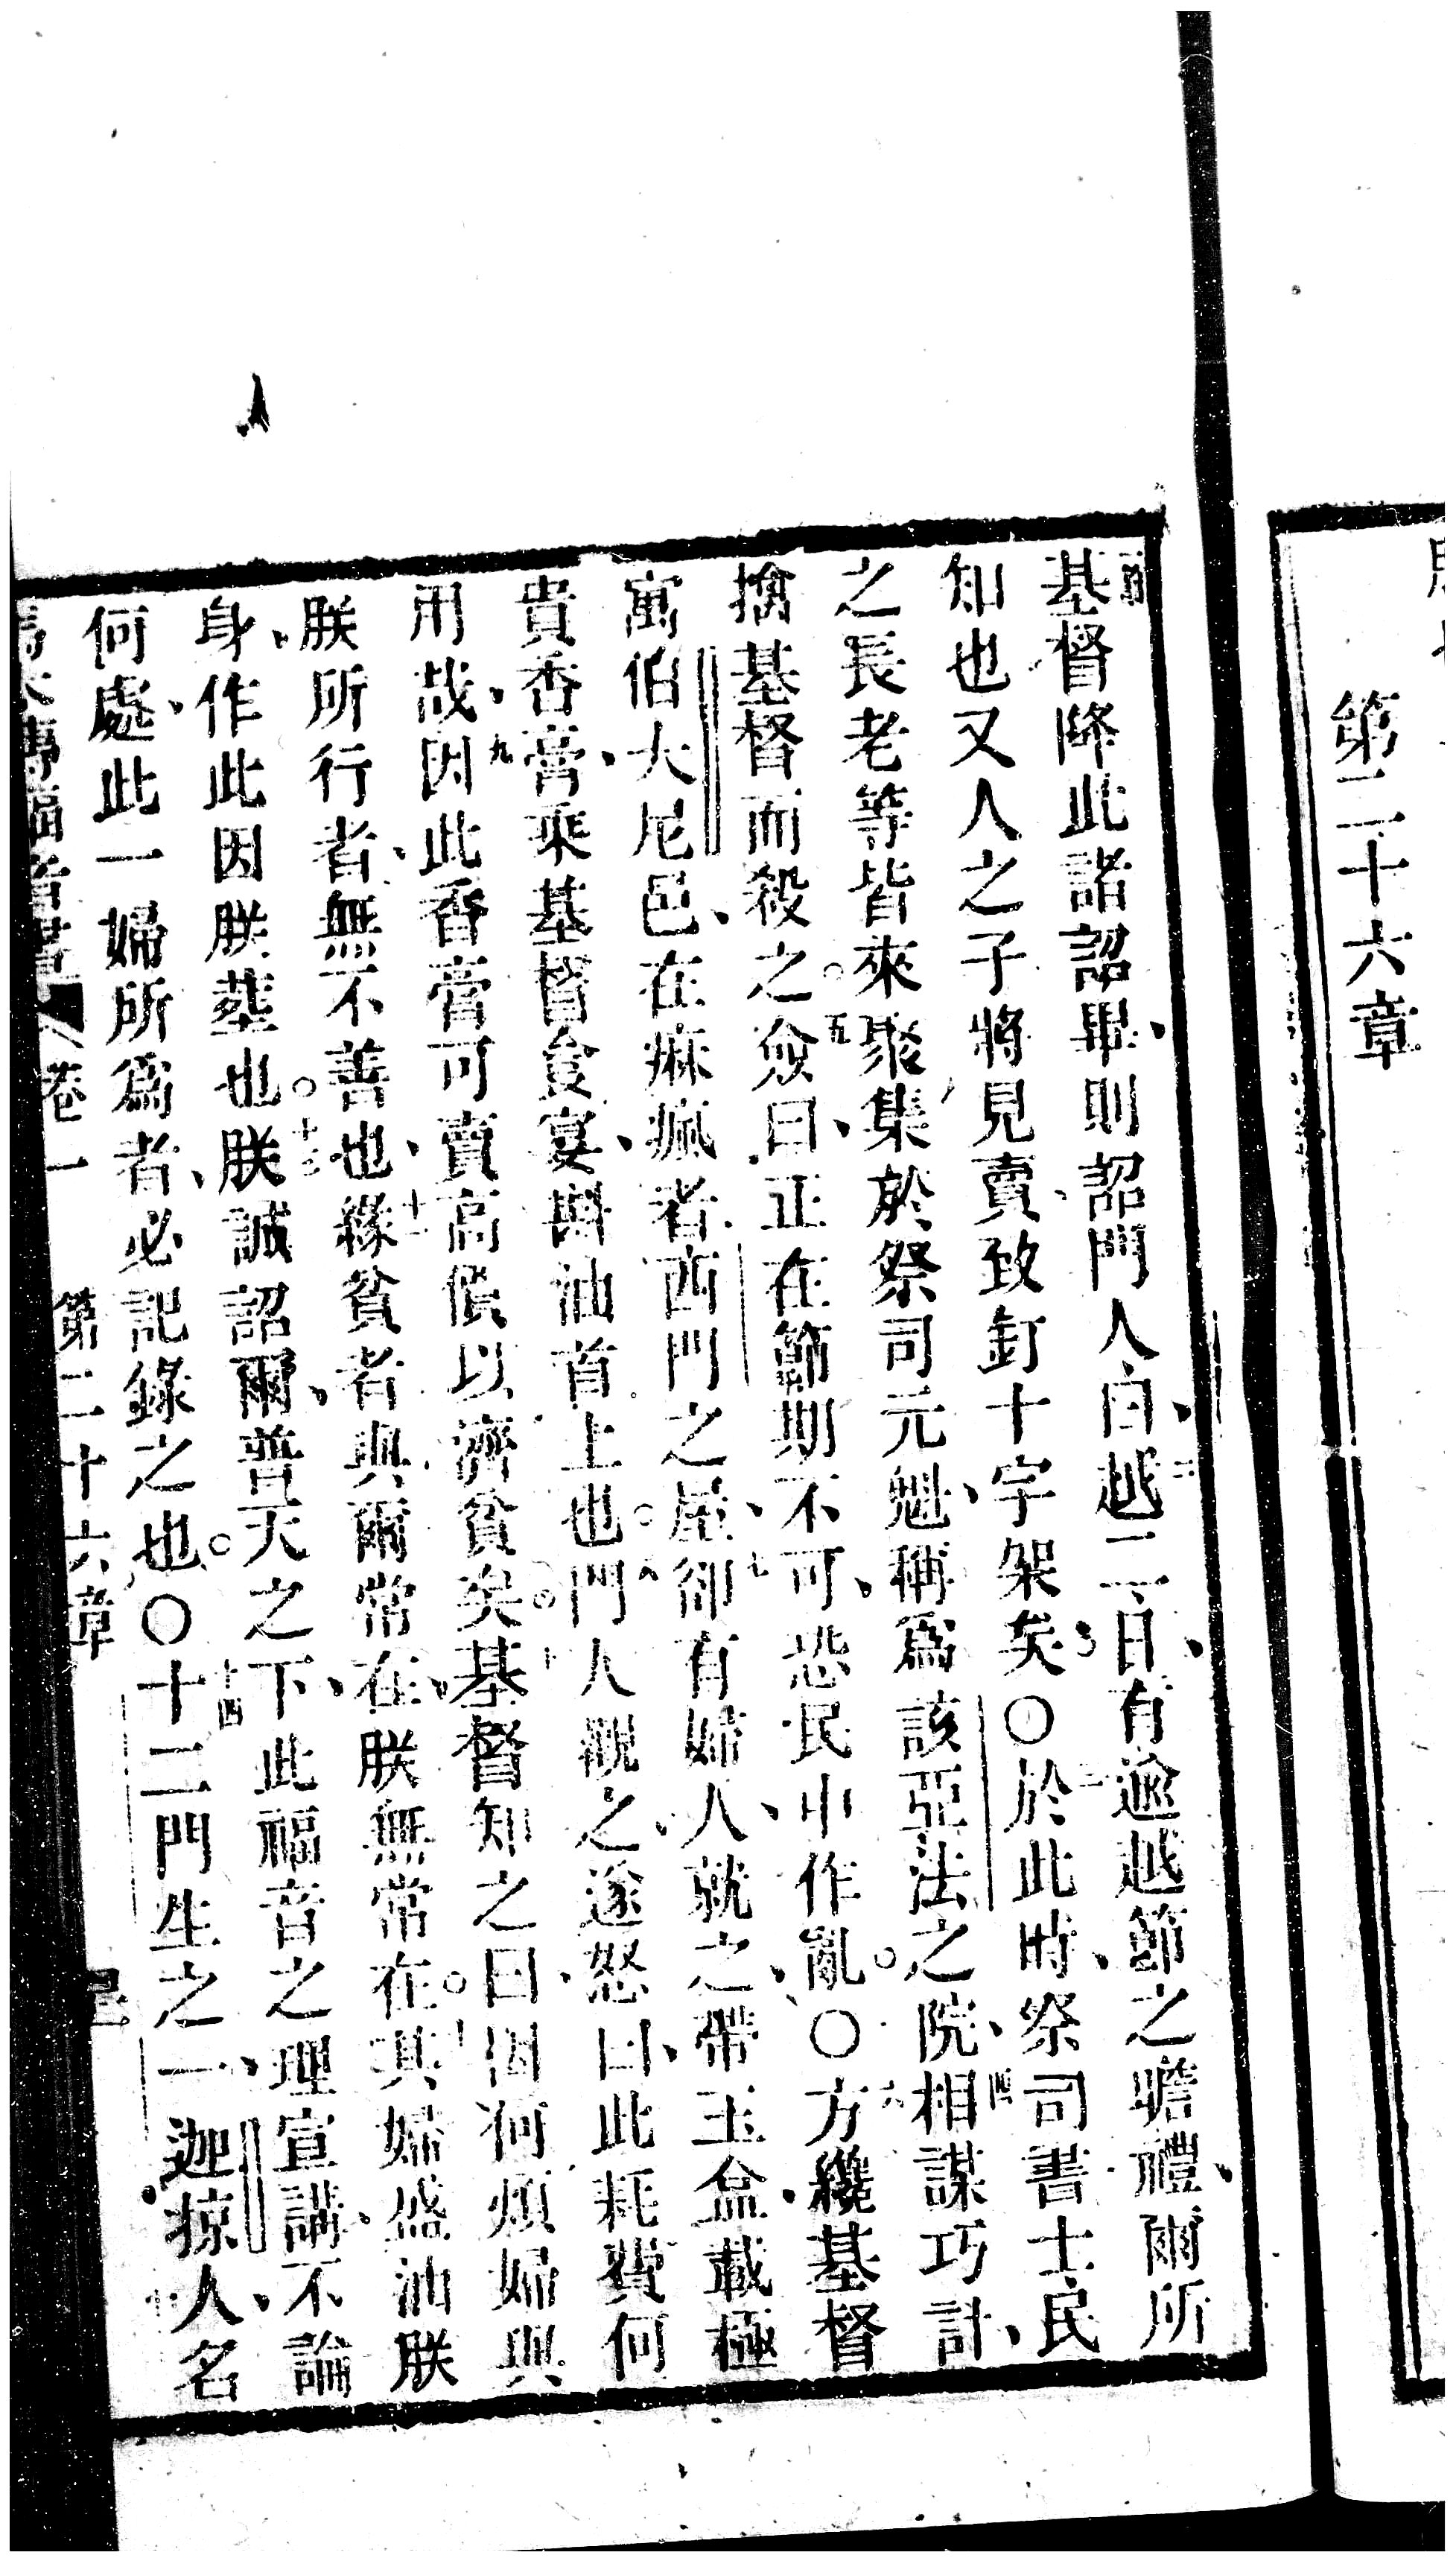 第二十六章
基督降此諸詔畢、則詔門人曰、越二日、有逾越節之瞻禮、爾所
知也、又人之子將見賣致釘十字架矣。〇於此時、祭司書士民
之長老等皆來聚集於祭司元魁、稱爲該亞法之院、相謀巧計、
擒基督而殺之。僉曰、正在節期不可、恐民中作亂。〇方纔基督
寓伯大尼邑、在痳瘋者西門之屋、卻有婦人、就之、帶玉盒、載極
貴香膏、乘基督食宴、斟油首上也。門人觀之、遂怒曰、此耗費何
用哉、因此香膏可賣高價、以濟貧矣。基督知之曰、因何煩婦與
朕所行者、無不善也、緣貧者與爾常在、朕無常在。其婦盛油朕
身、作此因朕葬也。朕誠詔爾、普天之下、此福音之理宣講、不論
何處、此一婦所爲者、必記錄之也。〇十二門生之一、迦掠人、名
馬太傳福音書 卷一 第二十六章